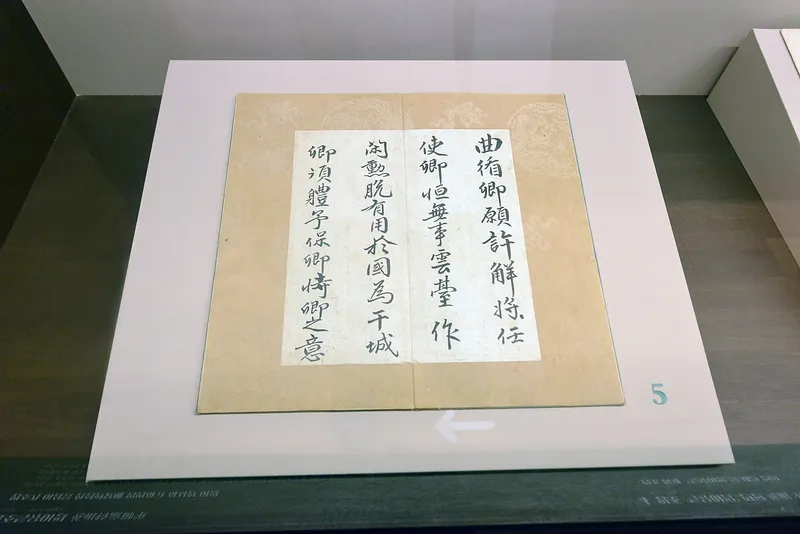 曲循卿願許解將任
使卿恒無事雲臺作
閑勳脫有用於國為干城
卿須體予保卿恃卿之意
5